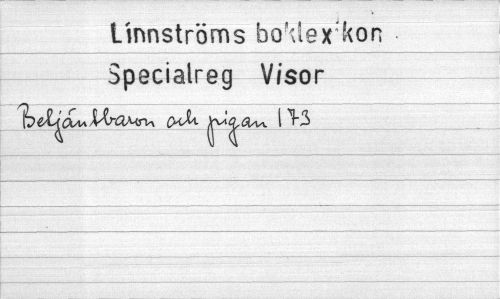 Linnströms boklexikon
Specialreg Visor
Betjäntbaron och pigan 173